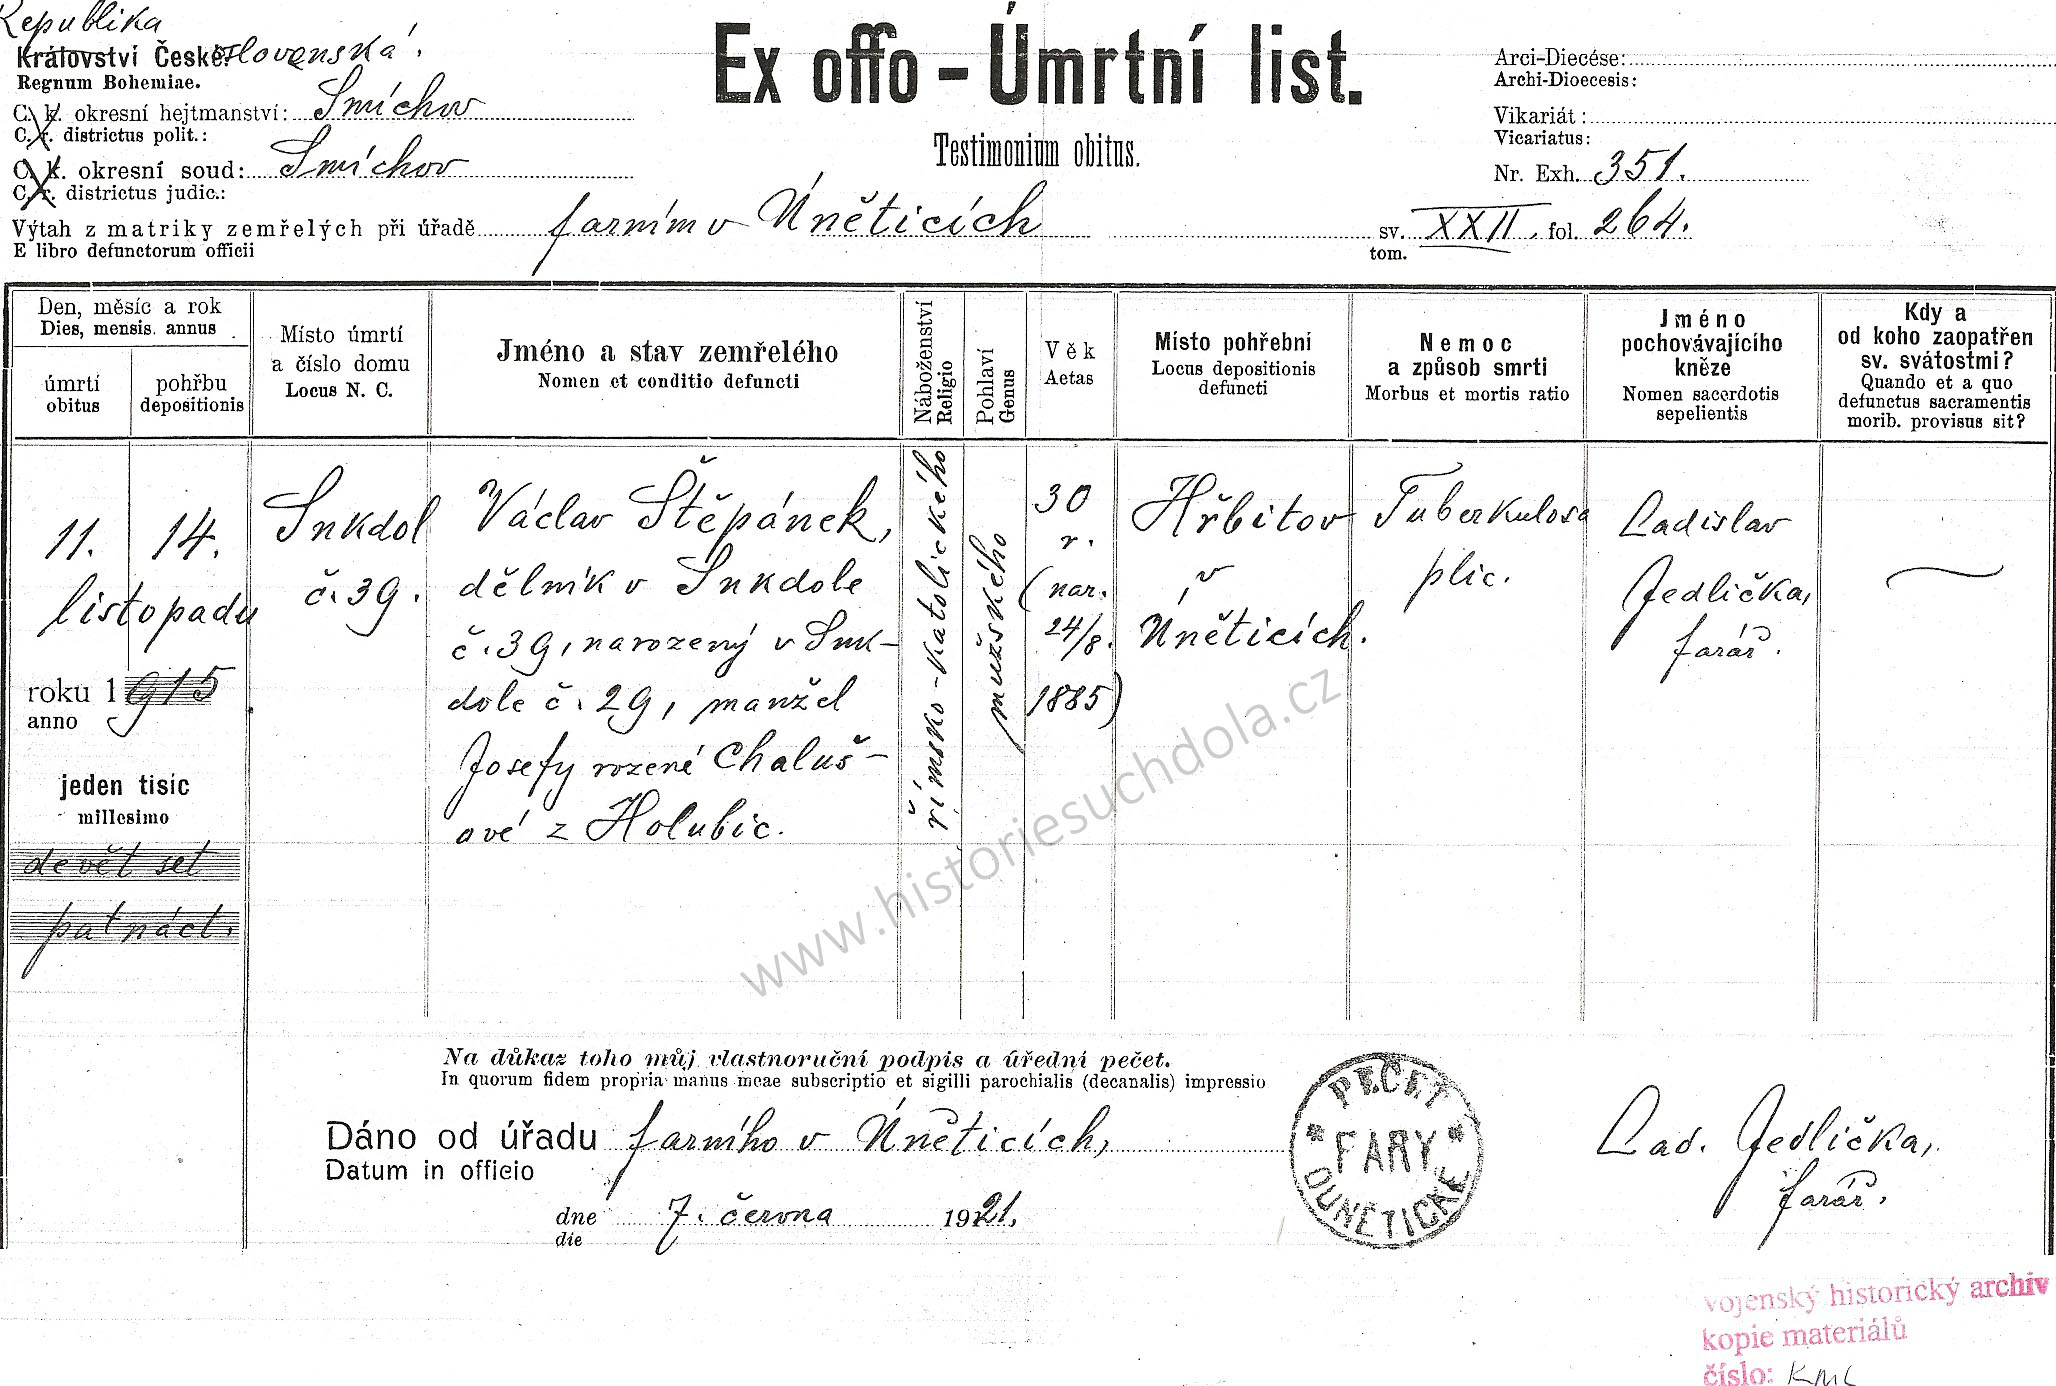 Republika
Království České slovenská.
Regnum Bohemiae.
C. k. okresní hejtmanství: Smíchov
C. r. districtus polit.:
C. k. okresní soud: Smíchov
C. r. districtus judic.:
Ex offo - Úmrtní list.
Testimonium obitus.
Arci-Diecése:
Archi-Dioecesis:
Vikariát:
Vicariatus:
Nr. Exh. 351.
Výtah z matriky zemřelých při úřadě farním v Úněticích sv. XXII, fol. 264.
E libro defunctorum officii tom.
Den, měsíc a rok
Dies, mensis, annus
úmrtí
obitus
pohřbu
depositionis
Místo úmrtí
a číslo domu
Locus N. C.
Jméno a stav zemřelého
Nomen et conditio defuncti
Náboženství
Religio
Pohlaví
Genus
Věk
Aetas
Místo pohřební
Locus depositionis
defuncti
Nemoc
a způsob smrti
Morbus et mortis ratio
Jméno
pochovávajícího
kněze
Nomen sacerdotis
sepelientis
Kdy a
od koho zaopatřen
sv. svátostmi?
Quando et a quo
defunctus sacramentis
morib. provisus sit?
11. 14.
listopadu
roku 1915
anno
jeden tisíc
millesimo
devět set
patnáct.
Sukdol
č. 39.
Václav Štěpánek,
dělník v Sukdole
č. 39, narozený v Suk-
dole č. 29, manžel
Josefy rozené Chaluš-
ové z Holubic.
římsko-katolického
mužského
30
r.
(nar.
24/8.
1885)
Hřbitov
v
Úněticích.
Tuberkulosa
plic.
Ladislav
Jedlička,
farář.
Na důkaz toho můj vlastnoruční podpis a úřední pečet.
In quorum fidem propria manus meae subscriptio et sigilli parochialis (decanalis) impressio
Dáno od úřadu farního v Úněticích,
Datum in officio
dne 7. června 1921.
die
PEČEŤ
* FARY *
OUNĚTICKÉ
Lad. Jedlička,
farář.
www.historiesuchdola.cz
vojenský historický archiv
kopie materiálů
číslo: